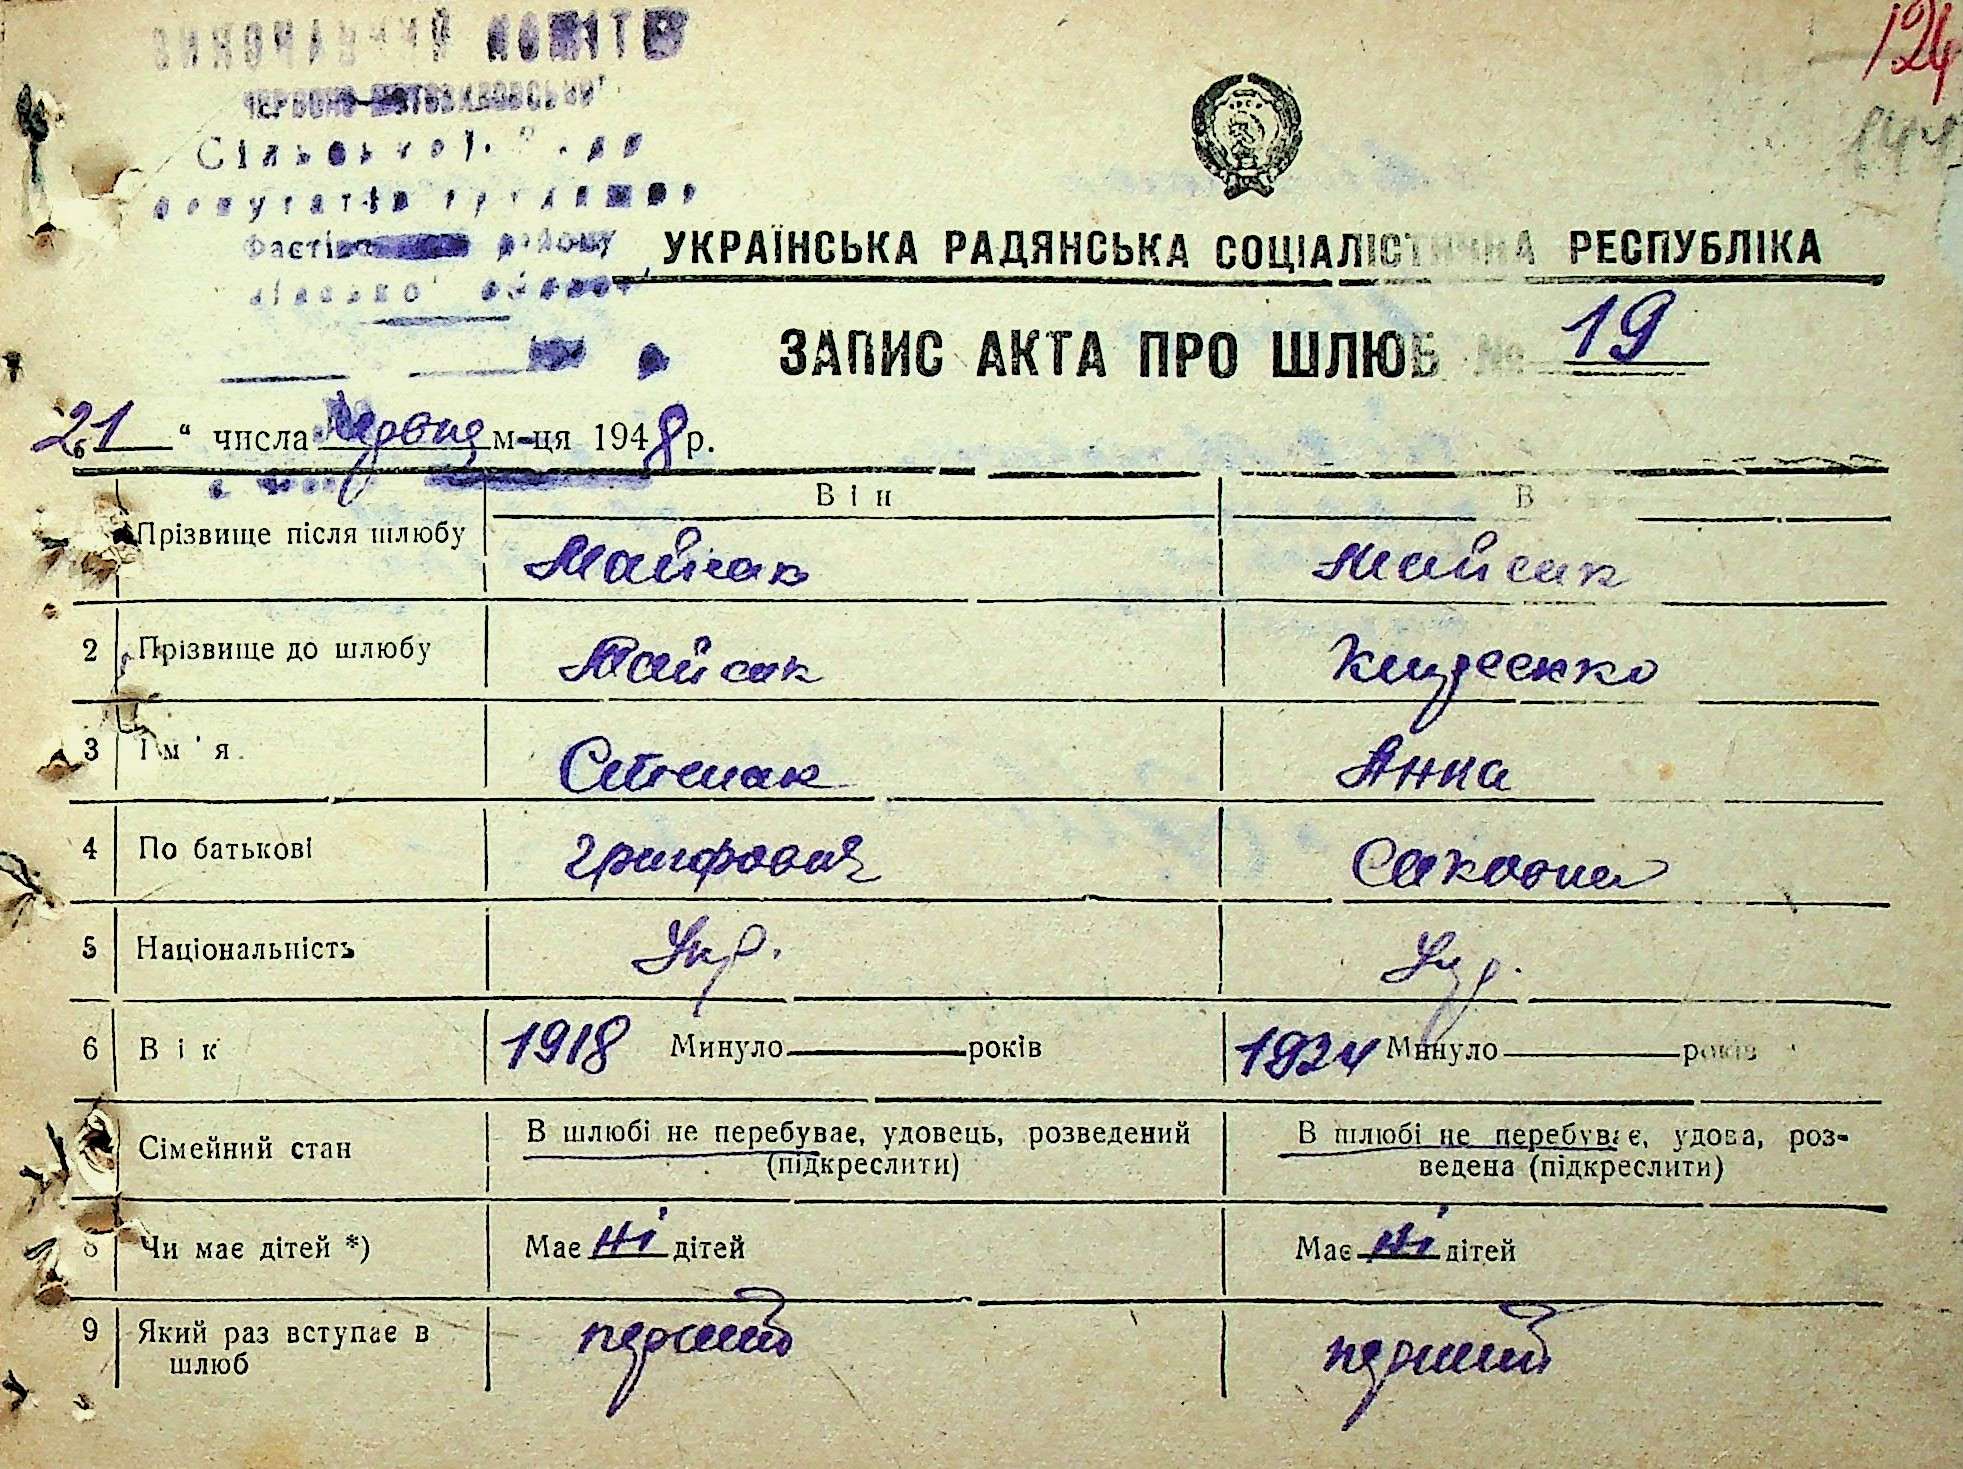 ВИКОНАВЧИЙ КОМІТЕТ
ЧЕРВОНО-МОТОВИЛІВСЬКОЇ
Сільської Ради
депутатів трудящих
Фастівського району
Київської області
124
УКРАЇНСЬКА РАДЯНСЬКА СОЦІАЛІСТИЧНА РЕСПУБЛІКА
ЗАПИС АКТА ПРО ШЛЮБ № 19
„21“ числа Червця м-ця 1948 р.
Він В
Прізвище після шлюбу Майсак Майсак
2 Прізвище до шлюбу Майсак
3 Ім'я Степан Анна
4 По батькові Савовна
5 Національність Укр. Укр.
6 Вік 1918 Минуло років 1924 Минуло років
Сімейний стан В шлюбі не перебуває, удовець, розведений (підкреслити) В шлюбі не перебуває, удова, розведена (підкреслити)
8 Чи має дітей *) Має ні дітей Має ні дітей
9 Який раз вступає в шлюб перший перший